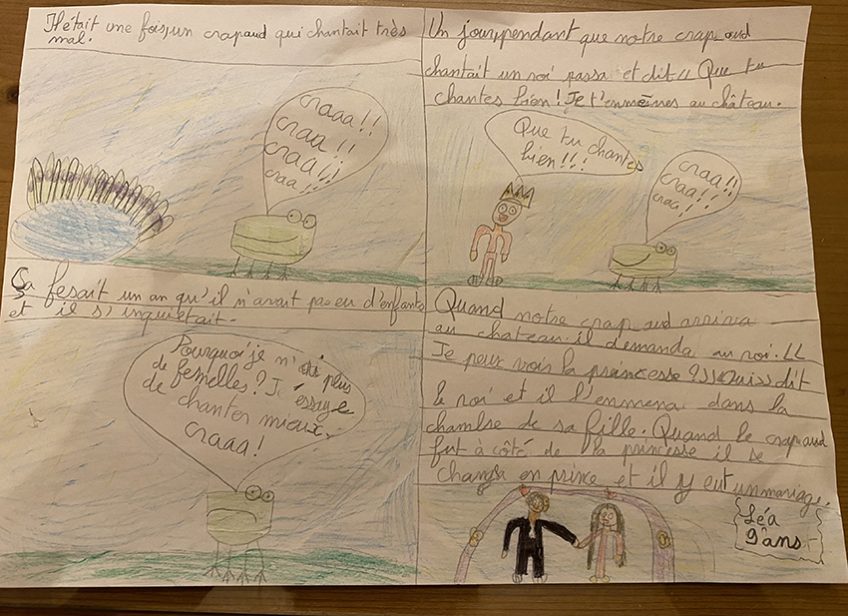 Il était une fois,un crapaud qui chantait très
mal.
craaa!!
craa!!
craa!!
craa!!
Ça fesait un an qu'il n'avait pas eu d'enfants
et il s'inquiétait.
Pourquoi je n'ai plus
de femelles? J'éssaye
de chanter mieux.
craaa!
Un jour,pendant que notre crapaud
chantait un roi passa et dit " Que tu
chantes bien! Je t'enmènes au château.
Que tu chantes
bien!!!
craa!!
craa!!
craa!
Quand notre crapaud arriva
au chateau il demanda au roi. "
Je peux vois la princesse ?»«oui» dit
le roi et il l'emmena dans la
chambre de sa fille. Quand le crapaud
fut à côté de la princesse il se
changea en prince et il y eut un mariage.
Léa
9 ans